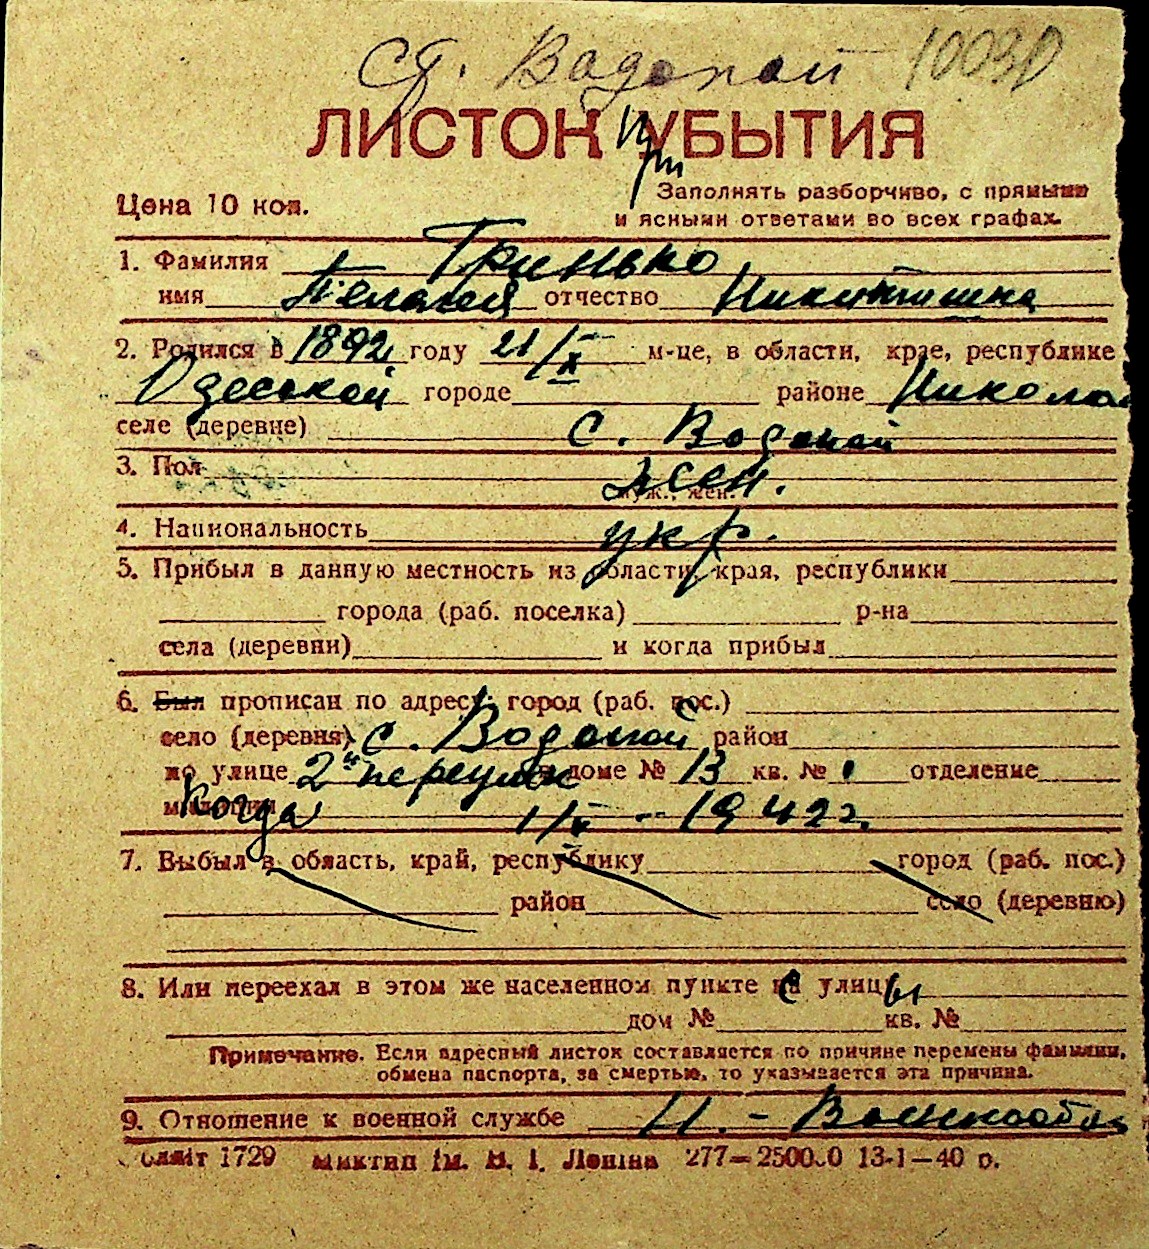 ст. Водопой 10030
ЛИСТОК УБЫТИЯ
При
Цена 10 коп.
Заполнять разборчиво, с прямыми
и ясными ответами во всех графах.
1. Фамилия Гринько
имя Пелагея отчество Никитишна
2. Родился в 1892 году 21/X м-це, в области, крае, республике
Одесской городе районе Никола
селе (деревне) с. Водопой
3. Пол жен.
муж., жен.
4. Национальность укр.
5. Прибыл в данную местность из области, края, республики
города (раб. поселка) р-на
села (деревни) и когда прибыл
6. Был прописан по адресу: город (раб. пос.)
село (деревня) с. Водопой район
по улице 2й переулок в доме № 13 кв. № отделение
милиции когда 1/X - 1942 г.
7. Выбыл в область, край, республику город (раб. пос.)
район село (деревню)
8. Или переехал в этом же населенном пункте с улицы
дом № кв. №
Примечание. Если адресный листок составляется по причине перемены фамилии,
обмена паспорта, за смертью, то указывается эта причина.
9. Отношение к военной службе Н. - Военнообяз
Обліт 1729 Миктип ім. В. І. Леніна 277—25000 13-1—40 р.